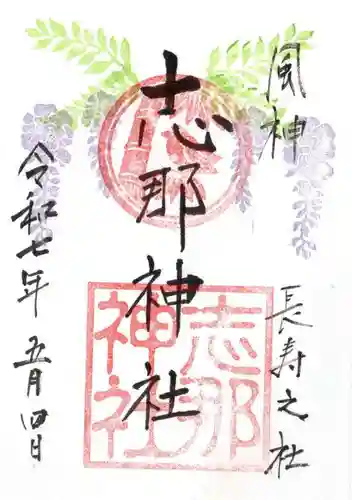 風神
長寿之社
志那神社
志那
神社
令和七年
五月四日